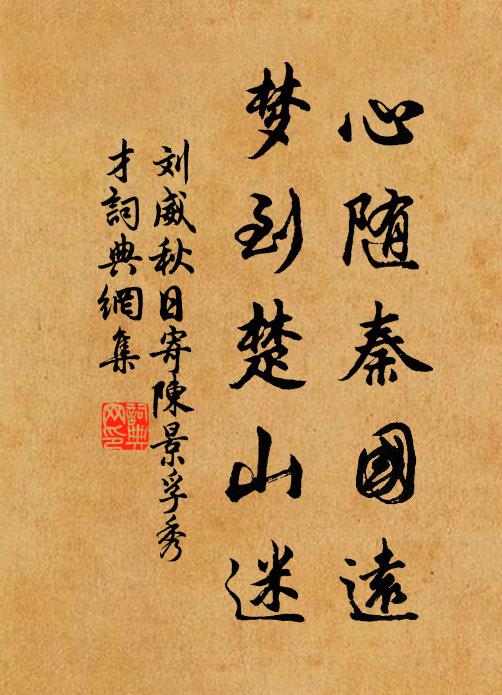 心随秦國遠
梦到楚山迷
刘威秋日寄陳景孚秀
才詞典網集
詞典
网印